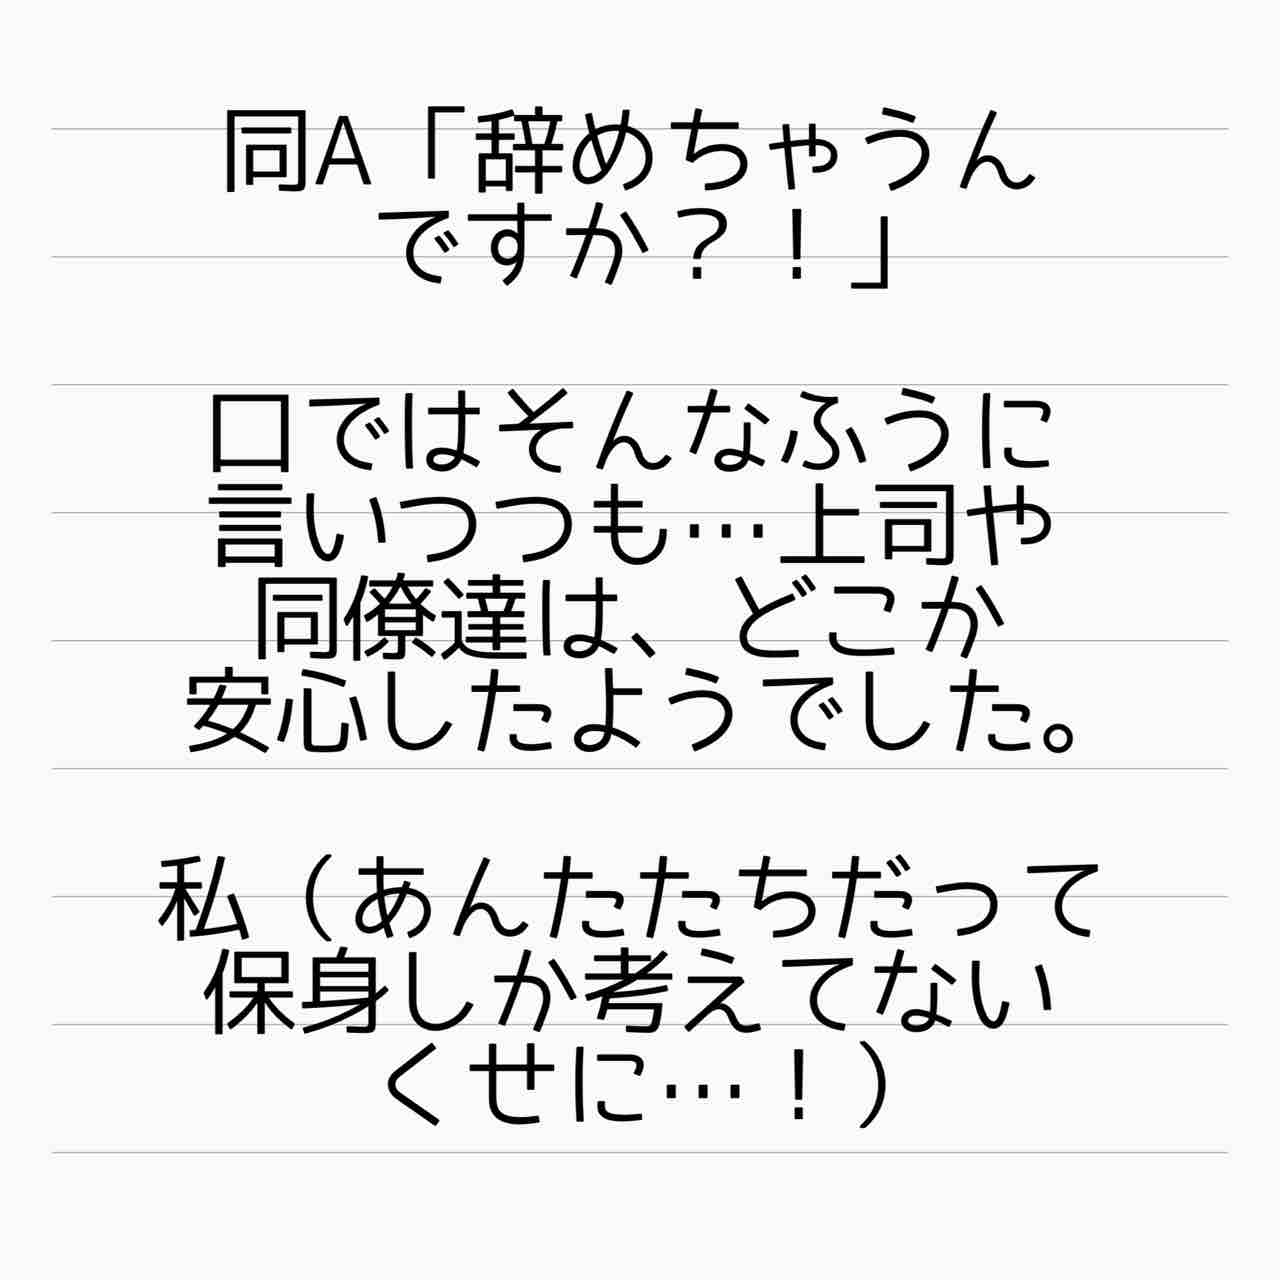 同A「辞めちゃうん
ですか？！」
口ではそんなふうに
言いつつも…上司や
同僚達は、どこか
安心したようでした。
私（あんたたちだって
保身しか考えてない
くせに…！）